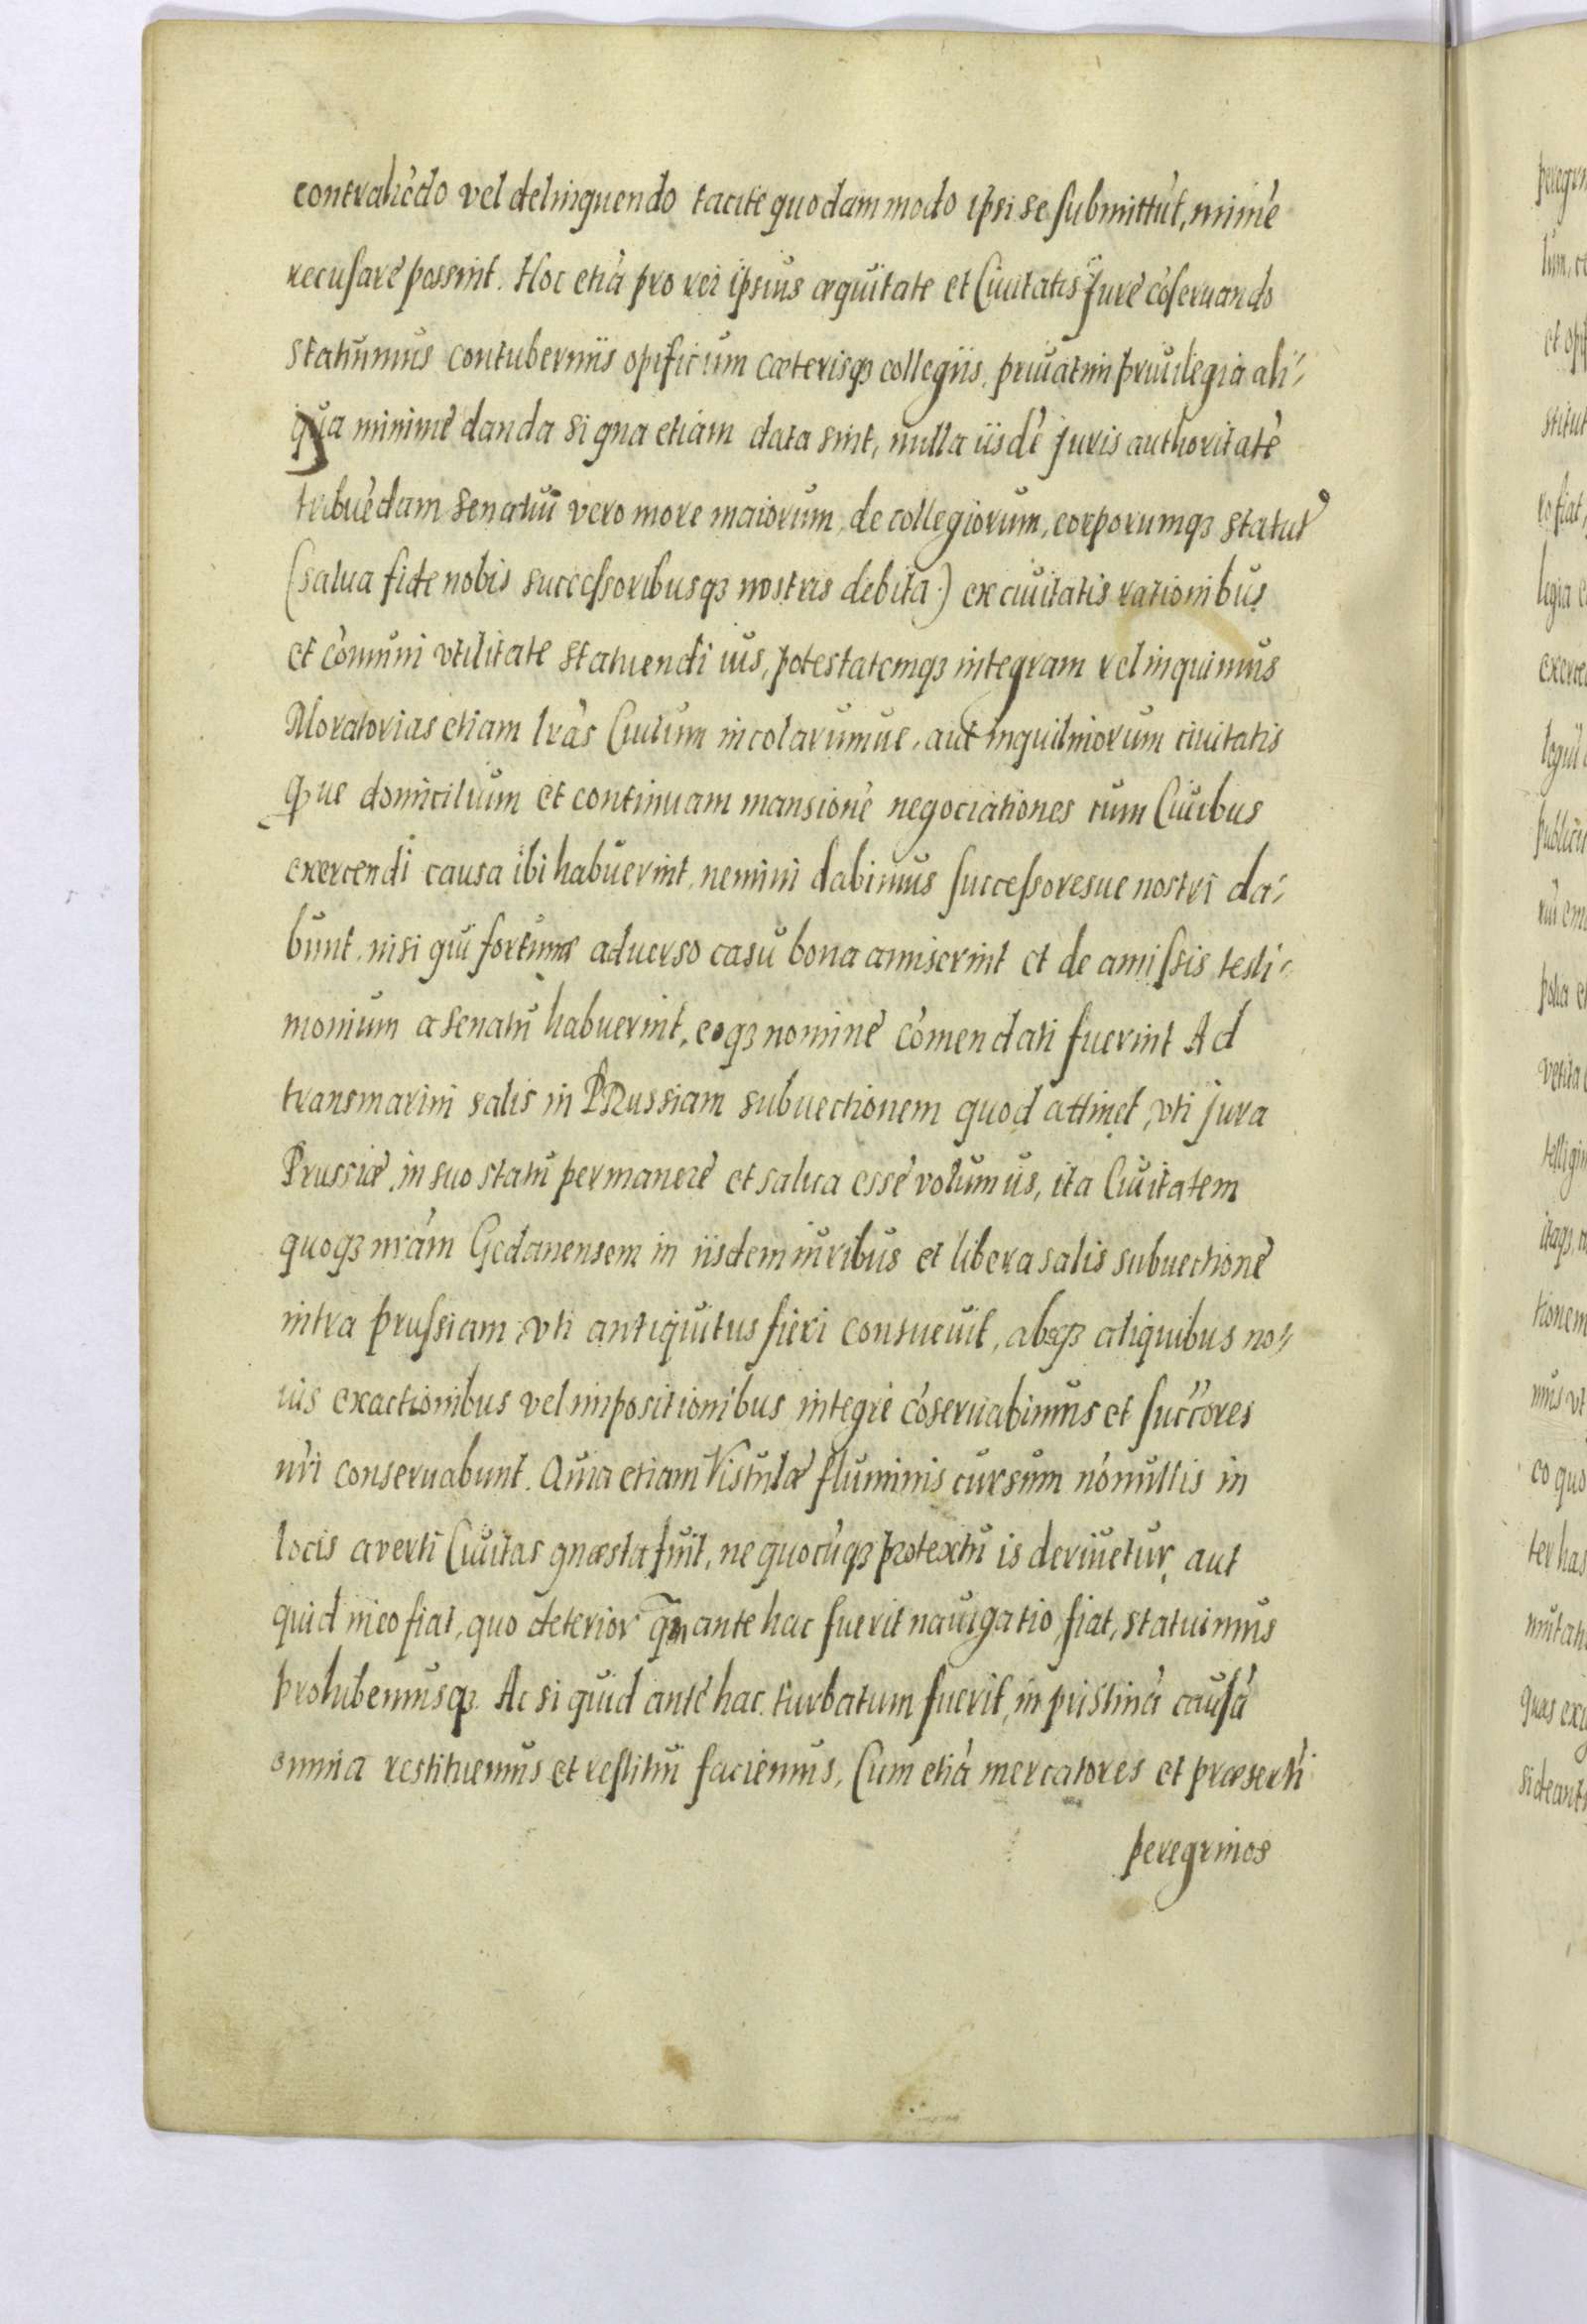 contrahēdo vel delinquendo tacite quodammodo ipsi se submittūt, minime
recusare possint. Hoc etiā pro rei ipsius æquitate et Ciuitatis Jure cōseruando
statuimus contuberniis opificum cæterisqȝ collegiis, priuatim priuilegia ali-
qua minime danda si qua etiam data sint, nulla iisdē juris authoritatē
tribuēdam senatui vero more maiorum, de collegiorum, corporumqȝ statut
(salua fide nobis successoribusqȝ nostris debita) ex ciuitatis rationibus
et cōmuni vtilitate statuendi ius, potestatemqȝ integram relinquimus
Moratorias etiam lrās Ciuium incolarumue, aut inquilinorum ciuitatis
que domicilium et continuam mansionē negociationes cum Ciuibus
exercendi causa ibi habuerint, nemini dabimus successoresue nostri da-
bunt, nisi qui fortunæ aduerso casu bona amiserint et de amissis testi-
monium a senatu habuerint, eoqȝ nomine cōmendati fuerint Ad
transmarini salis in PRussiam subuectionem quod attinet, vti jura
Prussiæ, in suo statu permanere et salua esse volumus, ita Ciuitatem
quoqȝ nrām Gedanensem in iisdem iuribus et libera salis subuectione
intra prussiam, vti antiquitus fieri consueuit, absqȝ aliquibus no-
uis exactionibus vel impositionibus integre cōseruabimus et succōres
nrī conseruabunt. Quia etiam Vistulæ fluminis cursum nōnullis in
locis averti Ciuitas quæsta fuit, ne quocūqȝ protextu is deriuetur, aut
quid in eo fiat, quo deterior qm̄ ante hac fuerit nauigatio fiat, statuimus
prohibemusqȝ. Ac si quid ante hac turbatum fuerit, in pristinā causā
omnia restituemus et restitui faciemus, Cum etiā mercatores et præserti
peregrinos